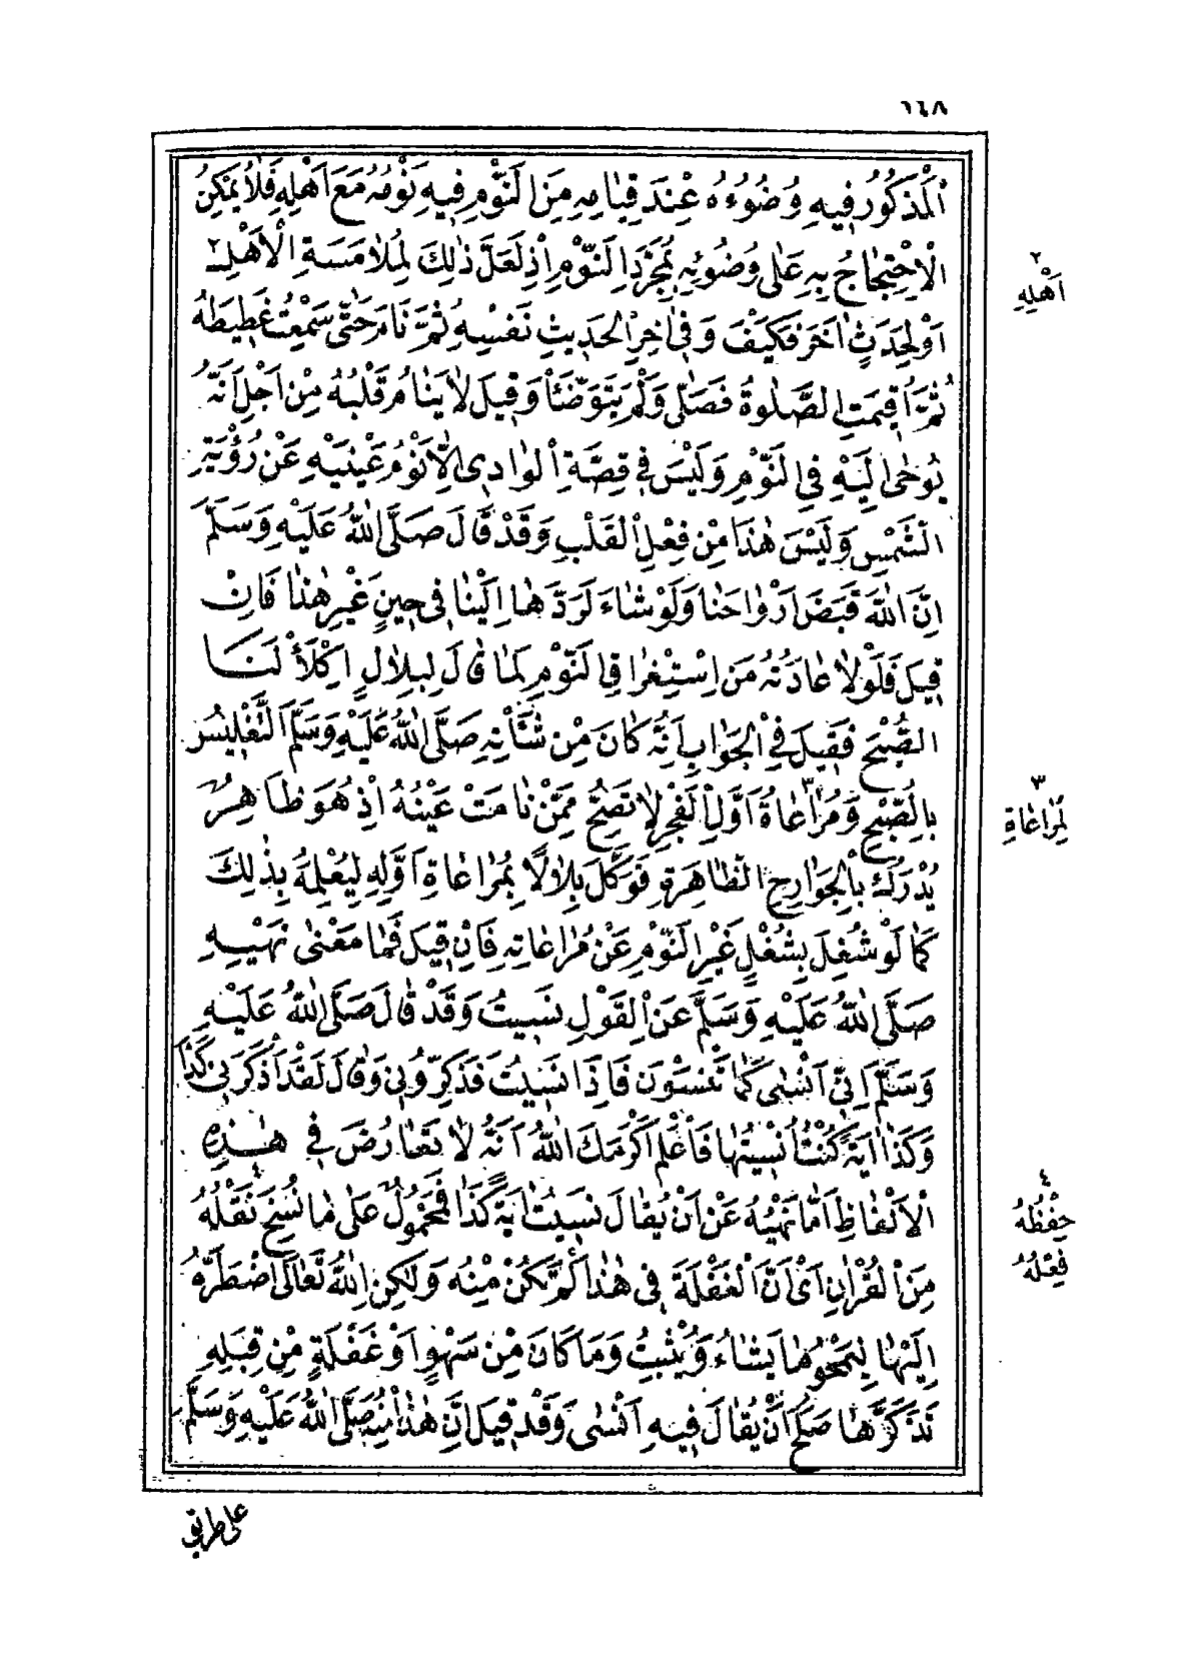 ١٤٨
اَلْمَذْكُورُ فِيهِ وُضُوُءُهُ عِنْدَ قِيَامِهِ مِنَ النَّوْمِ فِيهِ نَوْمُهُ مَعَ اَهْلِهِ فَلَا يُمْكِنُ
الْاِحْتِجَاجُ بِهِ عَلٰى وُضُوئِهِ بِمُجَرَّدِ النَّوْمِ اِذْ لَعَلَّ ذٰلِكَ لِمُلَامَسَةِ الْاَهْلِ ٢
اَوْ لِحَدَثٍ اٰخَرَ فَكَيْفَ وَفِى اٰخِرِ الْحَدِيثِ نَفْسِهِ ثُمَّ نَامَ حَتّٰى سَمِعْتُ غَطِيطَهُ
ثُمَّ اُقِيمَتِ الصَّلٰوةُ فَصَلّٰى وَلَمْ يَتَوَضَّأْ وَقِيلَ لَا يَنَامُ قَلْبُهُ مِنْ اَجْلِ اَنَّهُ
يُوحٰى اِلَيْهِ فِى النَّوْمِ وَلَيْسَ فِى قِصَّةِ الْوَادِى اِلَّا نَوْمُ عَيْنَيْهِ عَنْ رُؤْيَةِ
الشَّمْسِ وَلَيْسَ هٰذَا مِنْ فِعْلِ الْقَلْبِ وَقَدْ قَالَ صَلَّى اللّٰهُ عَلَيْهِ وَسَلَّمَ
اِنَّ اللّٰهَ قَبَضَ اَرْوَاحَنَا وَلَوْ شَاءَ لَرَدَّهَا اِلَيْنَا فِى حِينٍ غَيْرِ هٰذَا فَاِنْ
قِيلَ فَلَوْلَا عَادَتُهُ مِنَ اسْتِغْرَاقِ النَّوْمِ لَمَا قَالَ لِبِلَالٍ اِكْلَأْ لَنَا
الصُّبْحَ فَقِيلَ فِى الْجَوَابِ اَنَّهُ كَانَ مِنْ شَأْنِهِ صَلَّى اللّٰهُ عَلَيْهِ وَسَلَّمَ التَّغْلِيسُ
بِالصُّبْحِ وَمُرَاعَاةُ ٣ اَوَّلِ الْفَجْرِ لَا تَصِحُّ مِمَّنْ نَامَتْ عَيْنُهُ اِذْ هُوَ ظَاهِرٌ
يُدْرَكُ بِالْجَوَارِحِ الظَّاهِرَةِ فَوَكَّلَ بِلَالًا بِمُرَاعَاةِ اَوَّلِهِ لِيُعْلِمَهُ بِذٰلِكَ
كَمَا لَوْ شُغِلَ بِشُغْلٍ غَيْرِ النَّوْمِ عَنْ مُرَاعَاتِهِ فَاِنْ قِيلَ فَمَا مَعْنٰى نَهْيِهِ
صَلَّى اللّٰهُ عَلَيْهِ وَسَلَّمَ عَنِ الْقَوْلِ نَسِيتُ وَقَدْ قَالَ صَلَّى اللّٰهُ عَلَيْهِ
وَسَلَّمَ اِنِّى اَنْسٰى كَمَا تَنْسَوْنَ فَاِذَا نَسِيتُ فَذَكِّرُونِى وَقَالَ لَقَدْ اَذْكَرَنِى كَذَا
وَكَذَا اٰيَةً كُنْتُ اُنْسِيتُهَا فَاعْلَمْ اَكْرَمَكَ اللّٰهُ اَنَّهُ لَا تَعَارُضَ فِى هٰذِهِ
الْاَلْفَاظِ اَمَّا نَهْيُهُ عَنْ اَنْ يُقَالَ نَسِيتُ اٰيَةَ كَذَا فَمَحْمُولٌ عَلٰى مَا نُسِخَ نَقْلُهُ ٤
مِنَ الْقُرْاٰنِ اَىْ اَنَّ الْغَفْلَةَ فِى هٰذَا لَمْ تَكُنْ مِنْهُ وَلٰكِنَّ اللّٰهَ تَعَالٰى اضْطَرَّهُ
اِلَيْهَا لِيَمْحُوَ مَا يَشَاءُ وَيُثْبِتُ وَمَا كَانَ مِنْ سَهْوٍ اَوْ غَفْلَةٍ مِنْ قِبَلِهِ
تَذَكَّرَهَا صَلَحَ اَنْ يُقَالَ فِيهِ اَنْسٰى وَقَدْ قِيلَ اِنَّ هٰذَا مِنْهُ صَلَّى اللّٰهُ عَلَيْهِ وَسَلَّمَ
٢
اَهْلِهِ
٣
لِمُرَاعَاةِ
٤
حِفْظُهُ
فِعْلُهُ
على طريق